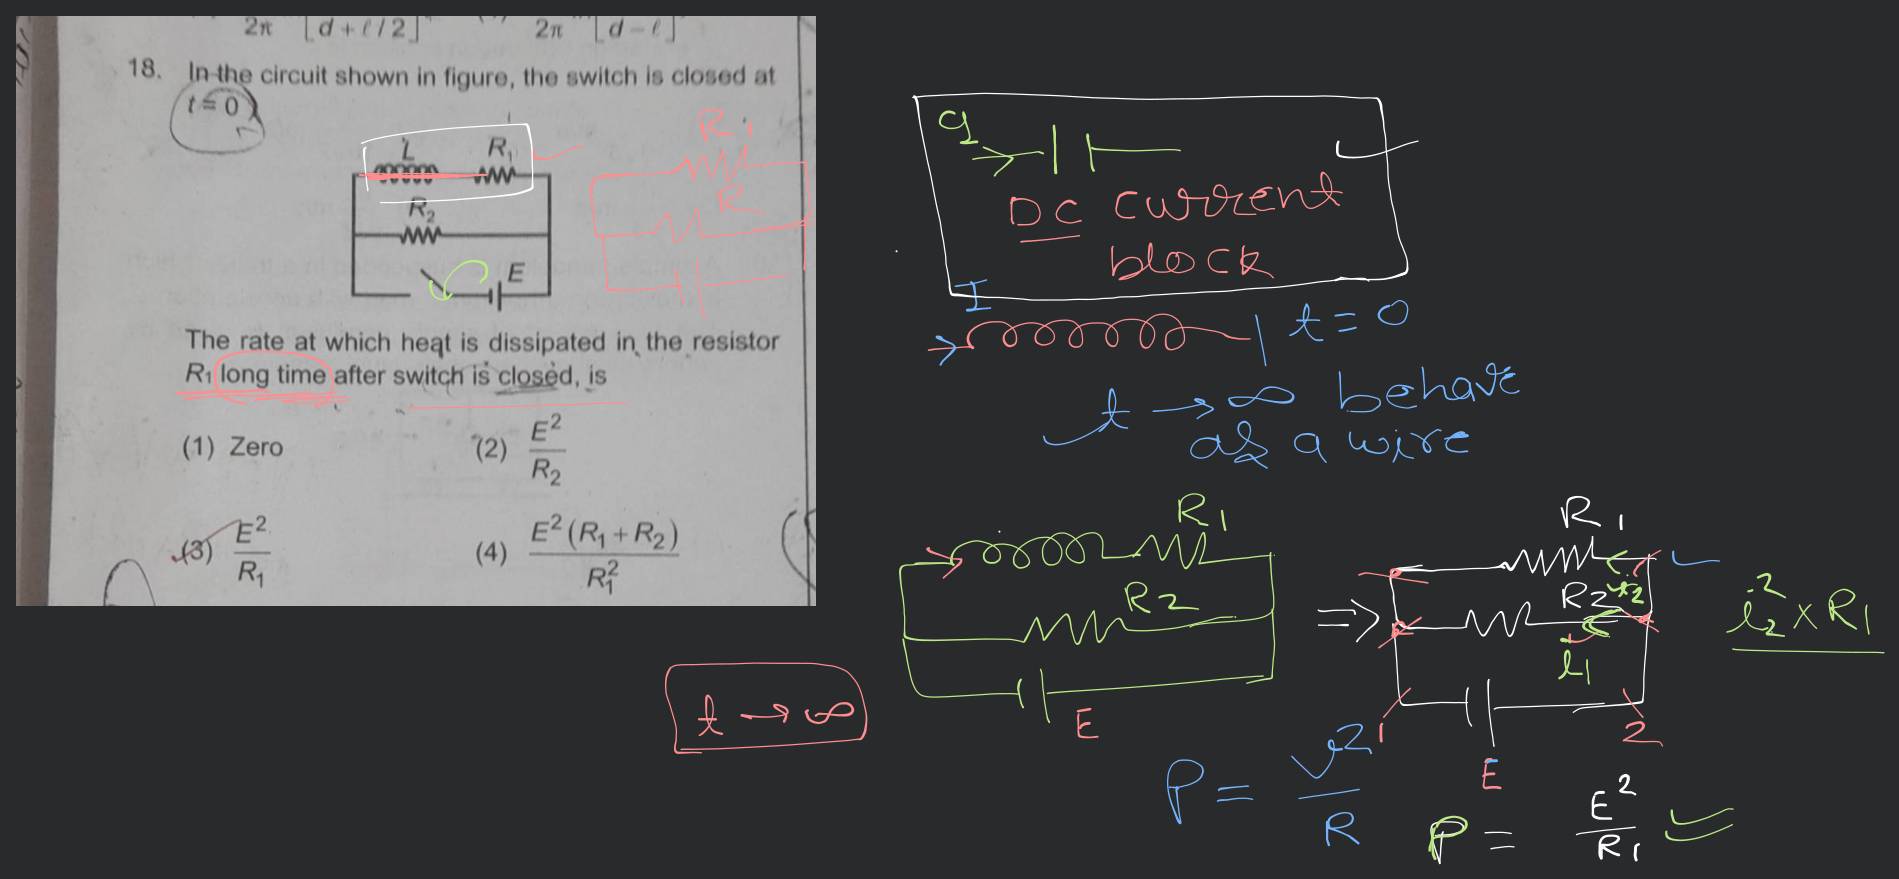 2π [d + ℓ/2] 2π [d − ℓ]
18. In the circuit shown in figure, the switch is closed at
t = 0
L R₁
R₂
E
R₁
R
The rate at which heat is dissipated in the resistor
R₁ long time after switch is closed, is
(1) Zero (2) E²/R₂
(3) E²/R₁ (4) E²(R₁ + R₂)/R₁²
q
DC current
block
I
t = 0
t → ∞ behave
as a wire
R₁
R₂
E
t → ∞
⇒
R₁
R₂ i₂
i₁
1 2
E
i₂² × R₁
P = V²/R
P = E²/R₁